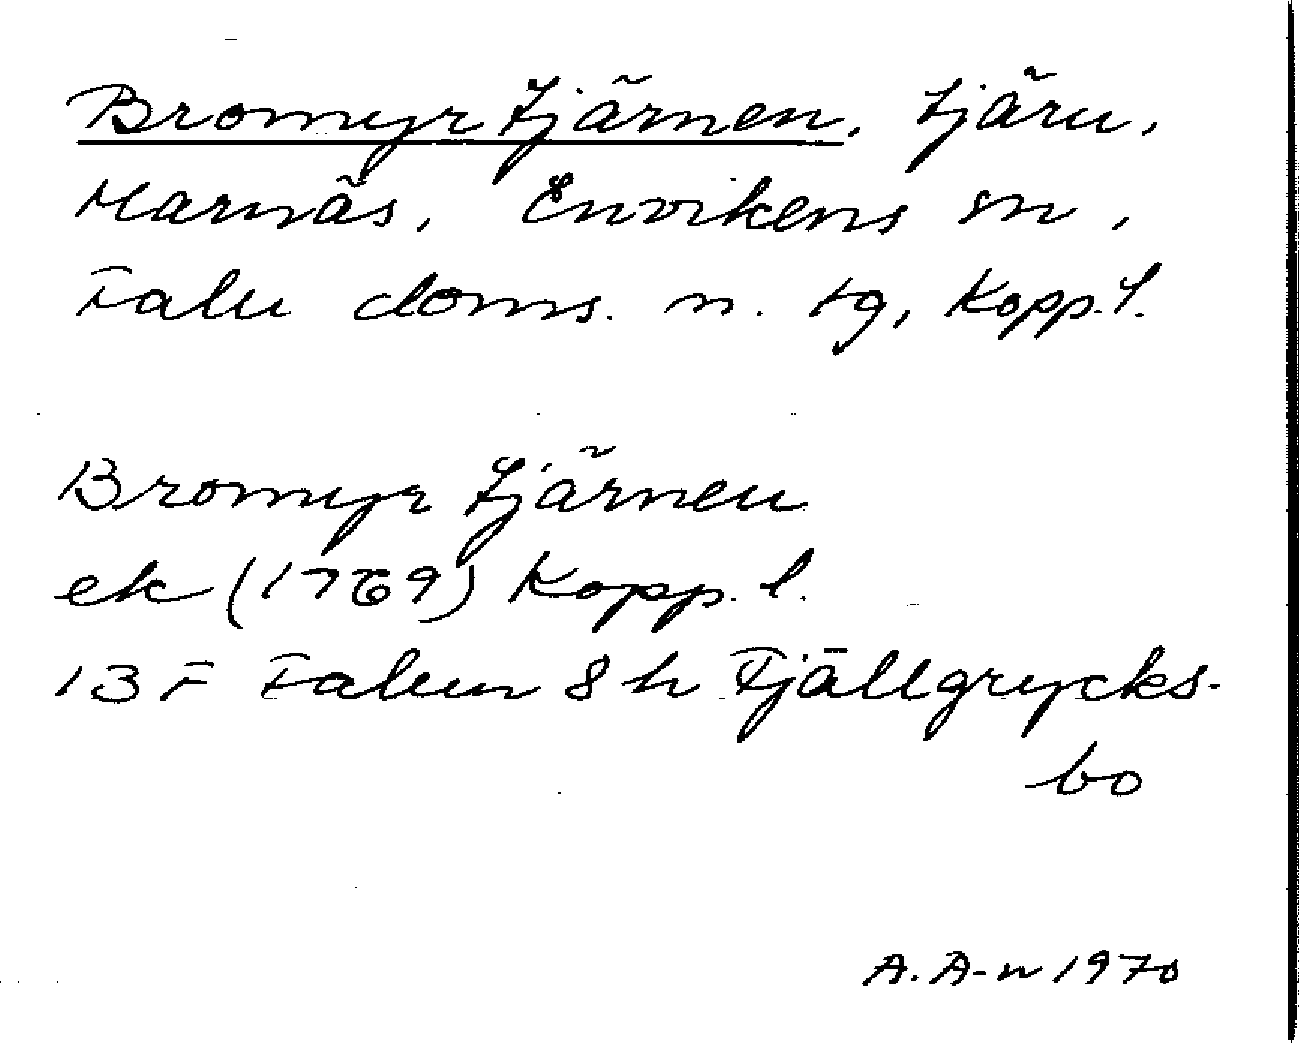 Bromyrtjärnen, tjärn,
Marnäs, Envikens sn,
Falu doms. n. tg, Kopp. l.
Bromyr tjärnen
ek (1769) Kopp. l.
13 F Falun 8 h Fjällgrycks-
bo
A. A-n 1970